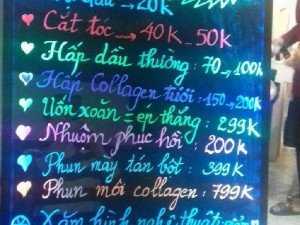 đầu → 20K
Cắt tóc → 40K - 50K
Hấp dầu thường : 70 → 100k
Hấp Collagen tươi : 150 → 200k
Uốn xoăn = ép thẳng : 299K
Nhuộm phục hồi : 200k
Phun mày tán bột : 399K
Phun môi collagen : 799K
Xăm hình nghệ thuật :